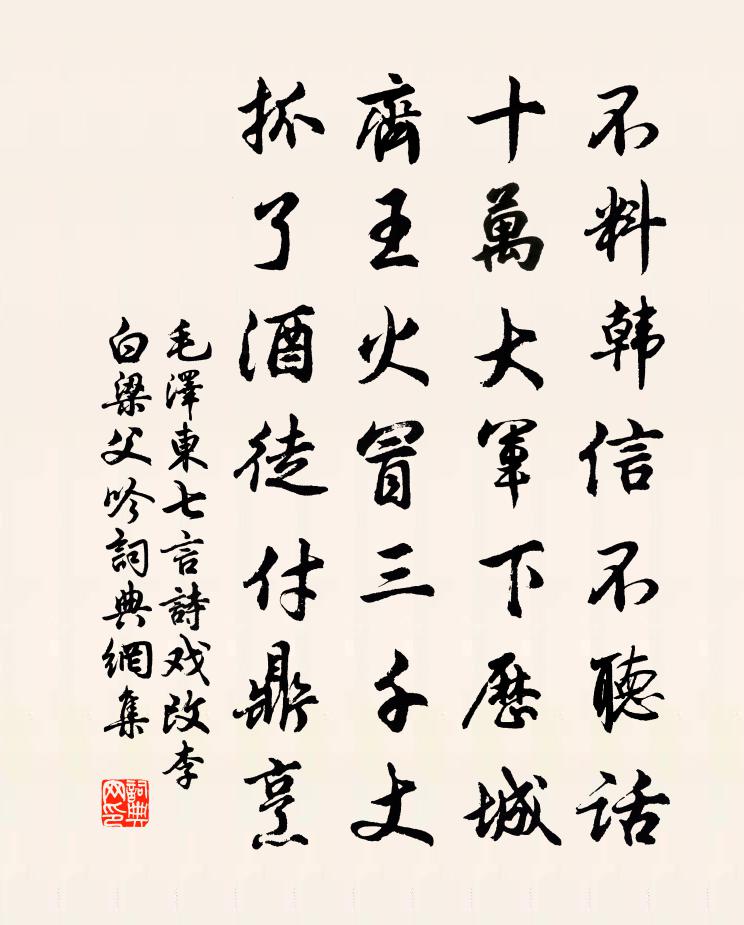 不料韩信不聽話
十萬大軍下歷城
齊王火冒三千丈
抓了酒徒付鼎烹
毛澤東七言詩戏改李
白梁父吟詞典網集
詞典
网印